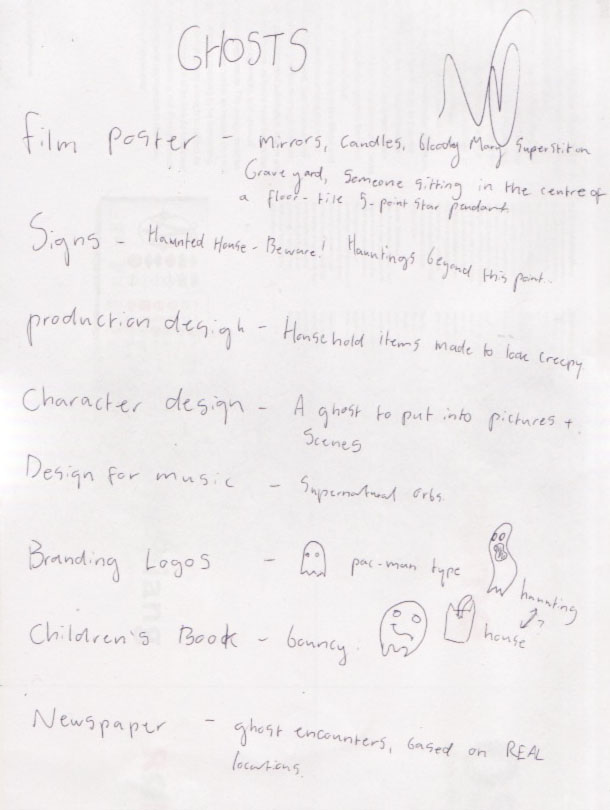 GHOSTS
film poster - mirrors, candles, bloody Mary Superstition
Graveyard, Someone sitting in the centre of
a floor-tile 5-point star pendant.
Signs - Haunted House - Beware! Hauntings beyond this point..
production design - Household items made to look creepy
Character design - A ghost to put into pictures +
Scenes
Design for music - Supernatural orbs.
Branding Logos - pac-man type
haunting
Children's Book - bouncy. house
Newspaper - ghost encounters, based on REAL
locations.